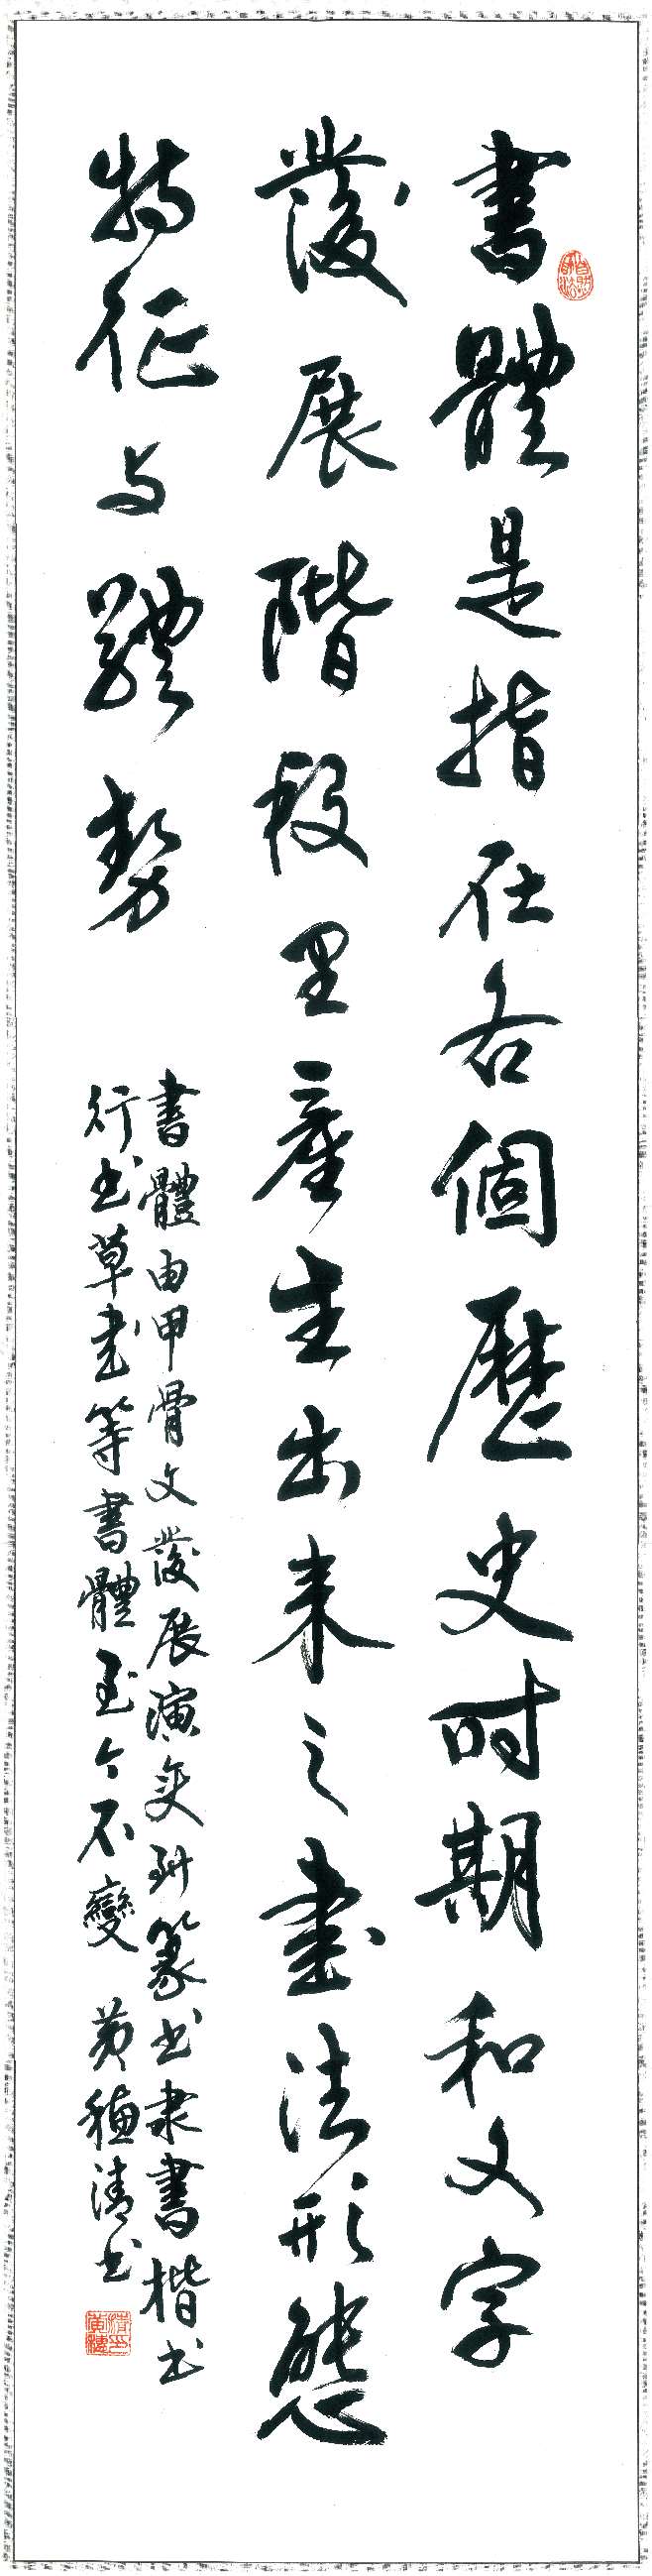 書體是指在各個歷史时期和文字
發展階段里產生出来之書法形態
特征与體勢
書體由甲骨文發展演变到篆书隶書楷书
行书草書等書體至今不變 黄穗清书